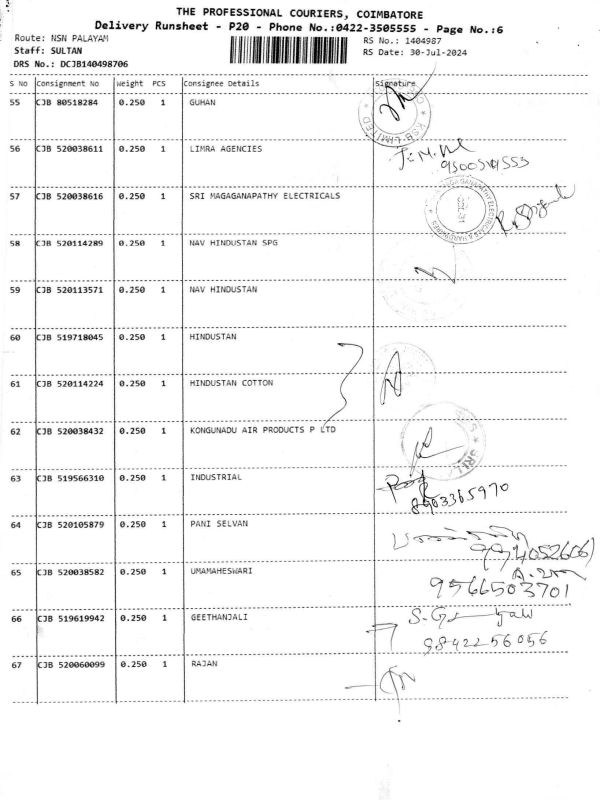 THE PROFESSIONAL COURIERS, COIMBATORE
Delivery Runsheet - P20 - Phone No.:0422-3505555 - Page No.:6
Route: NSN PALAYAM
RS No.: 1404987
Staff: SULTAN
RS Date: 30-Jul-2024
DRS No.: DCJB140498706
S No Consignment No Weight PCS Consignee Details Signature
55 CJB 80518284 0.250 1 GUHAN
KSB LIMITED
56 CJB 520038611 0.250 1 LIMRA AGENCIES
57 CJB 520038616 0.250 1 SRI MAGAGANAPATHY ELECTRICALS
58 CJB 520114289 0.250 1 NAV HINDUSTAN SPG
59 CJB 520113571 0.250 1 NAV HINDUSTAN
60 CJB 519718045 0.250 1 HINDUSTAN
61 CJB 520114224 0.250 1 HINDUSTAN COTTON
62 CJB 520038432 0.250 1 KONGUNADU AIR PRODUCTS P LTD
63 CJB 519566310 0.250 1 INDUSTRIAL
8903365970
64 CJB 520105879 0.250 1 PANI SELVAN
65 CJB 520038582 0.250 1 UMAMAHESWARI
9566503701
66 CJB 519619942 0.250 1 GEETHANJALI
9842256056
67 CJB 520060099 0.250 1 RAJAN